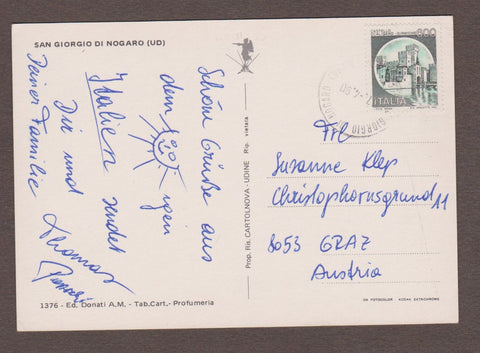 SAN GIORGIO DI NOGARO (UD)
Schöne Grüße aus
dem
igen
Italien sendet
Dir und
Deiner Familie
Thomas
1376 - Ed. Donati A.M. - Tab.Cart.- Profumeria
Prop. Ris. CARTOLNOVA - UDINE Rip. vietata
ITALIA
GIORGIO DI NOGARO
Frl
Susanne Klep
Christophorusgrund 11
8053 GRAZ
Austria
KODAK EKTACHROME